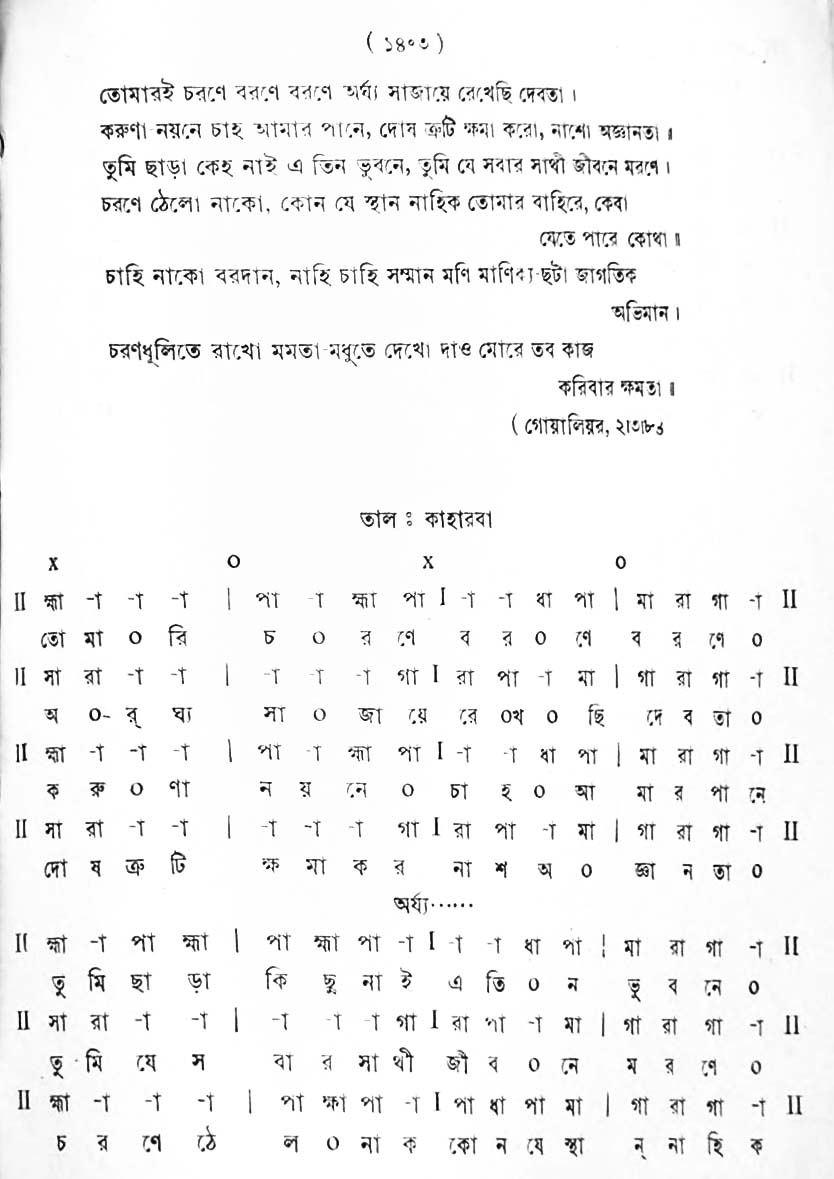 ( ১৪০৩ )
তোমারই চরণে বরণে বরণে অর্ঘ্য সাজায়ে রেখেছি দেবতা ।
করুণা-নয়নে চাহ আমার পানে, দোষ ত্রুটি ক্ষমা করো, নাশো অজ্ঞানতা ॥
তুমি ছাড়া কেহ নাই এ তিন ভুবনে, তুমি যে সবার সাথী জীবনে মরণে ।
চরণে ঠেলো নাকো, কোন যে স্থান নাহিক তোমার বাহিরে, কেবা
যেতে পারে কোথা ॥
চাহি নাকো বরদান, নাহি চাহি সম্মান মণি মাণিক্য-ছটা জাগতিক
অভিমান ।
চরণধূলিতে রাখো মমতা-মধুতে দেখো দাও মোরে তব কাজ
করিবার ক্ষমতা ॥
( গোয়ালিয়র, ২।৩।৮৪
তাল ঃ কাহারবা
x o x o
II হ্মা -া -া -া | পা -া হ্মা পা I -া -া ধা পা | মা রা গা -া II
তো মা ০ রি চ ০ র ণে ব র ০ ণে ব র ণে ০
II সা রা -া -া | -া -া -া গা I রা পা -া মা | গা রা গা -া II
অ ০- র্ ঘ্য সা ০ জা য়ে রে ০খ ০ ছি দে ব তা ০
II হ্মা -া -া -া | পা -া হ্মা পা I -া -া ধা পা | মা রা গা -া II
ক রু ০ ণা ন য় নে ০ চা হ ০ আ মা র পা নে
II সা রা -া -া | -া -া -া গা I রা পা -া মা | গা রা গা -া II
দো ষ ত্রু টি ক্ষ মা ক র না শ অ ০ জ্ঞা ন তা ০
অর্ঘ্য······
II হ্মা -া পা হ্মা | পা হ্মা পা -া I -া -া ধা পা | মা রা গা -া II
তু মি ছা ড়া কি ছু না ই এ তি ০ ন ভু ব নে ০
II সা রা -া -া | -া -া -া গা I রা পা -া মা | গা রা গা -া II
তু মি যে স বা র সা থী জী ব ০ নে ম র ণে ০
II হ্মা -া -া -া | পা ক্ষা পা -া I পা ধা পা মা | গা রা গা -া II
চ র ণে ঠে ল ০ না ক কো ন যে স্থা ন্ না হি ক